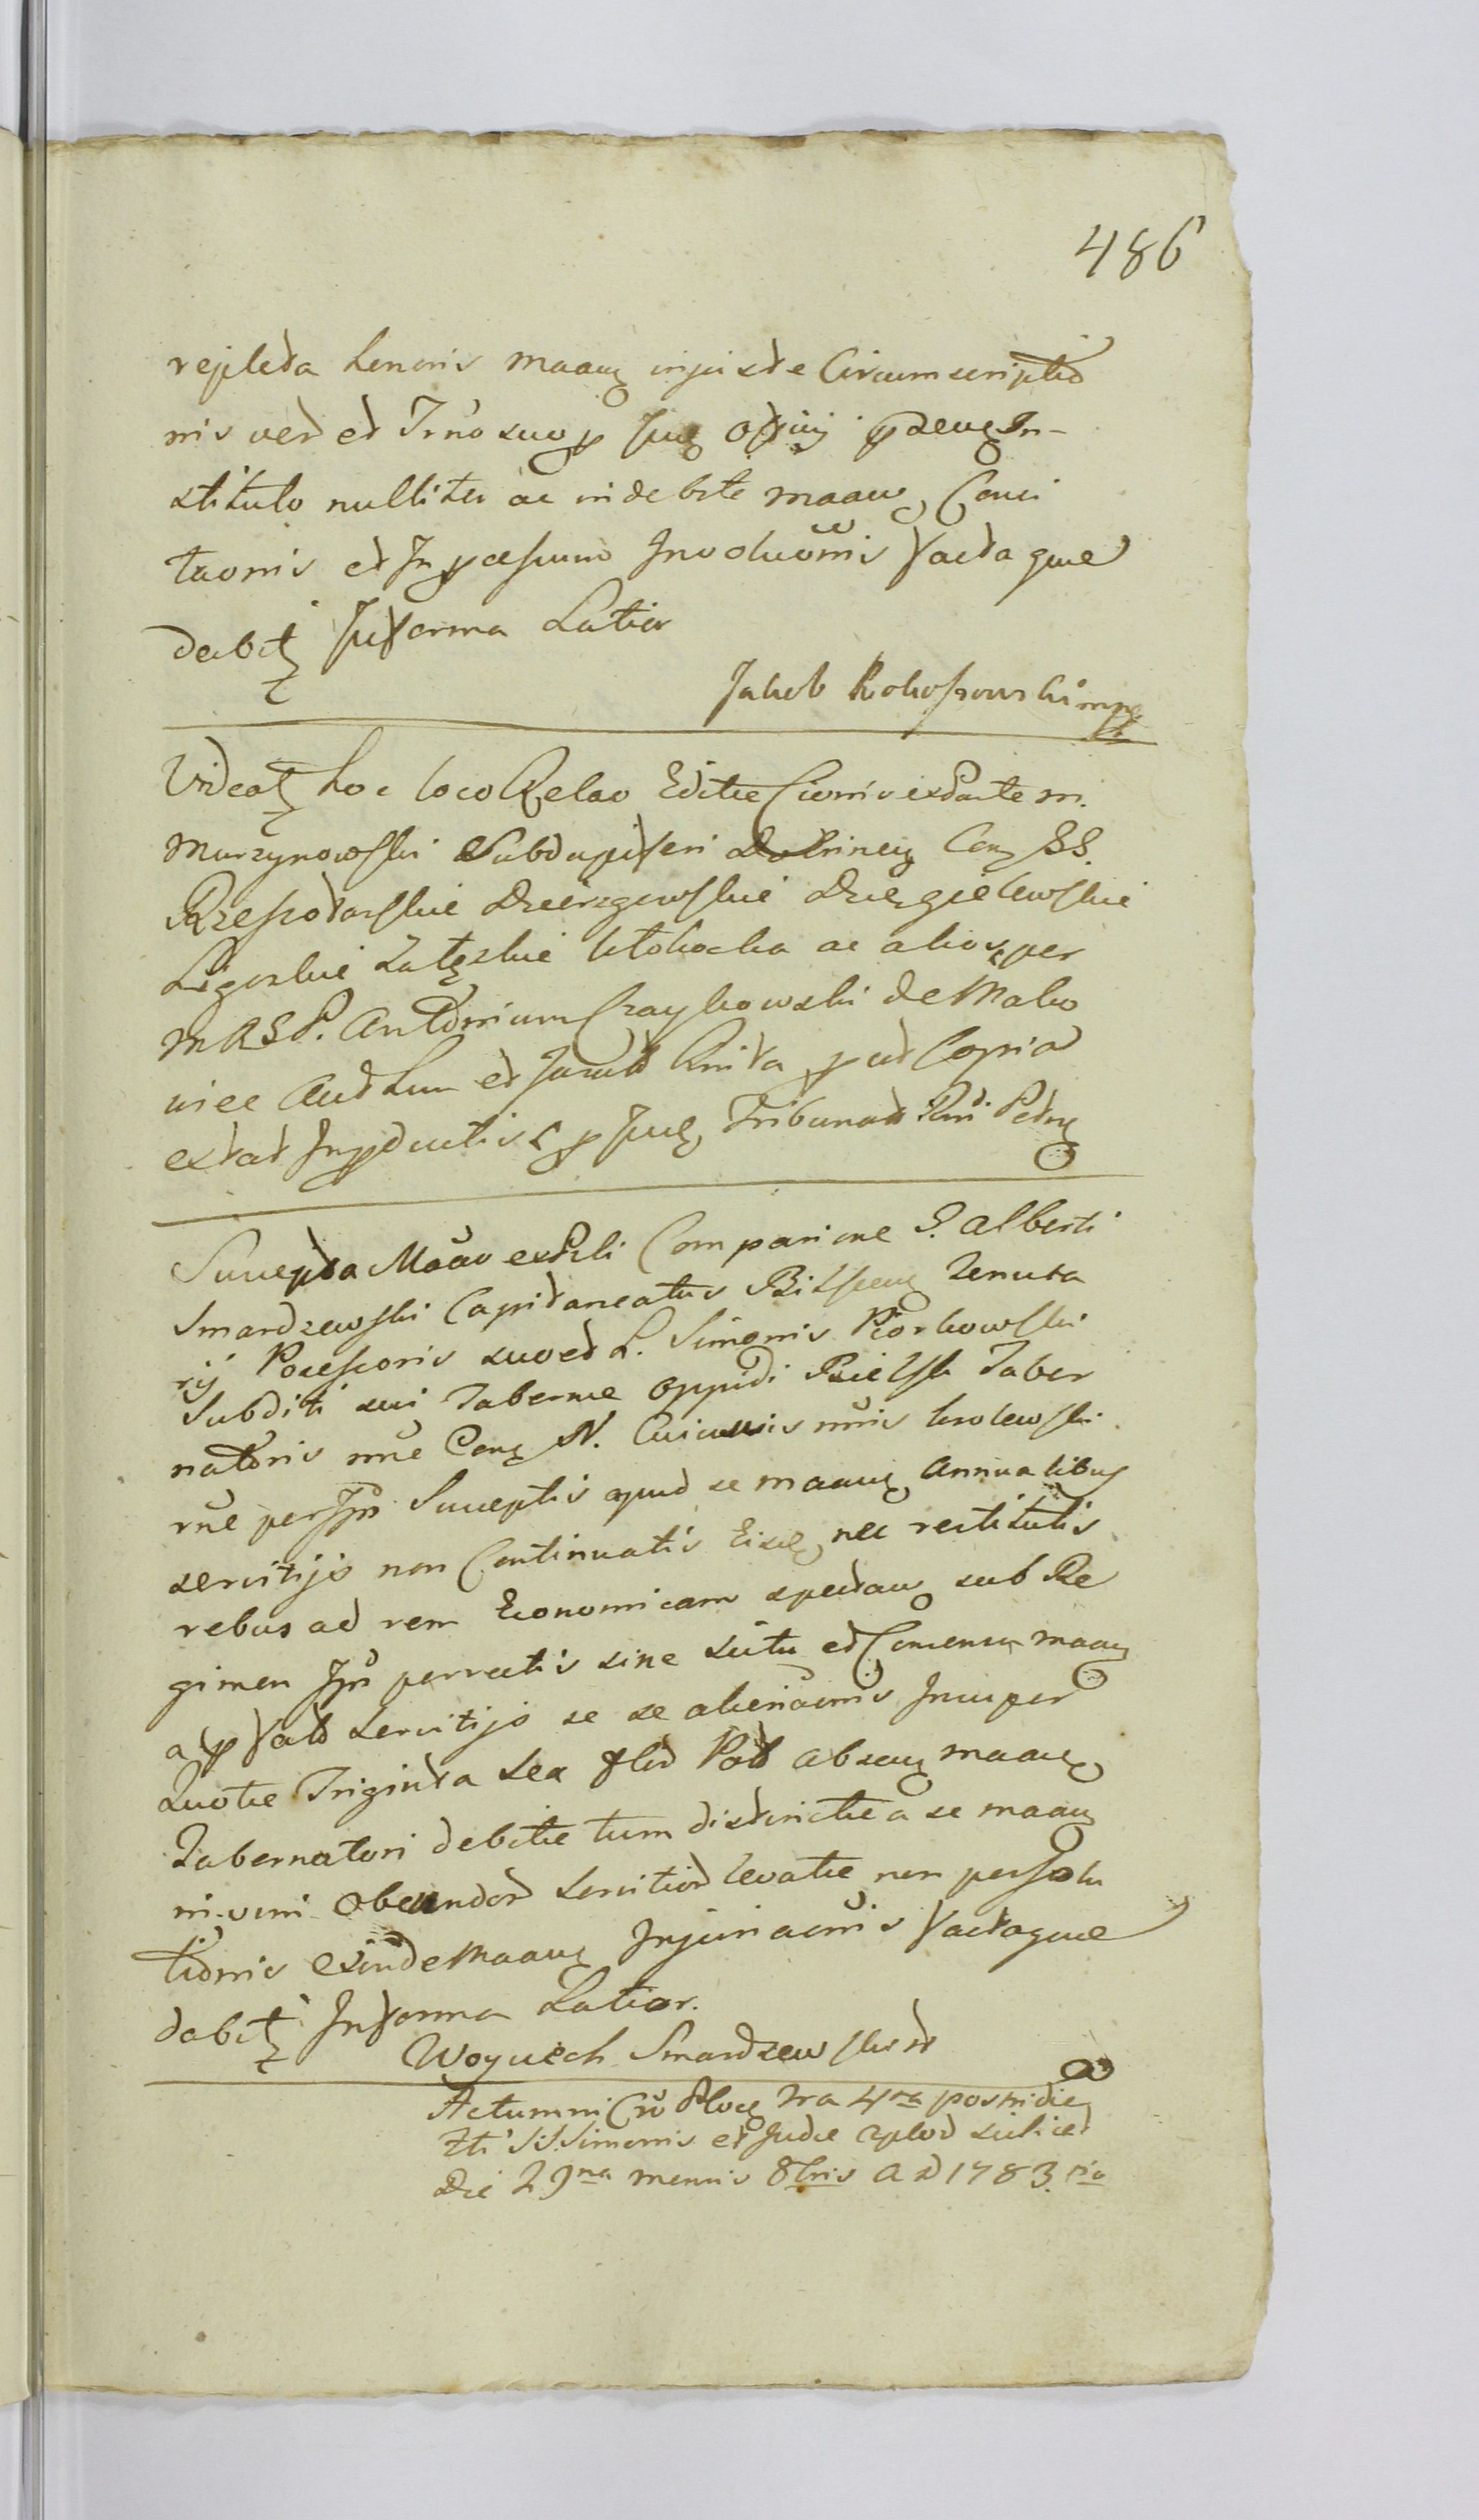 486
repleta honoris maaug injuste Circumscriptio
nis ved et Trno suo p Jug Offiuj pdeug In-
stituto nulliter ac indebite maaug Conci
taonis et In pcessum Involuonis facta que
dabit Informa Latior
Jakob Rokossowski mp
Videat hoc loco Relao Editae Cionis ex Parte m.
Murzynowski Subdapiferi Dobrineg Con SS.
Rzeszotarskie Dzierzgowskie Dzięgielewskie
Ligoskie Załęskie Kłobocka ac alios per
M R S P. Antonium Czaykowski de Mako
wiec Aud Lum et Jurat Knita p ut Copia
extat In pductis p Jug Tribunal Rni Petrg
Suscepta Moao ex Psli Comparione S. Alberti
Smardzewski Capitaneatus Bilsceng Tenuta
rij Possessoris suo et L. Simonis Piorkowski
Subditi sui Tabernae Oppidi Bielsk Taber
natoris nne Cong N. Cuiusvis nnis Krolewski
rne per Ips Susceptis apud se maaug Annualibus
servitijs non Continuatis Eisq nec restitutis
rebus ad rem Economicam spectang sub Re
gimen Ips perrectis sine scitu et Consensu maaug
a p fatis Servitijs se se alienaonis Insuper
Quotae Triginta sex flor Pol abseng maaug
Tabernatori debitae tum distinctae a se maaug
ni-vini Obeundor servitior levatae non persolu
tionis exinde Maaug Injuriaonis facta que
dabit Informa Latior.
Woyciech Smardzewski
Actum in Cro Ploceg Fra 4ta postridie
fti SS. Simonis et Judae Aplor scilicet
Die 29na mensis 8bris A D 1783.